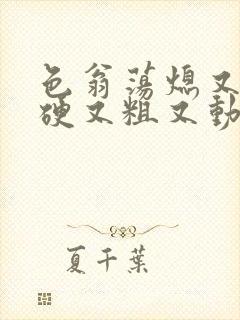 色翁荡熄又
硬又粗又動
夏千葉